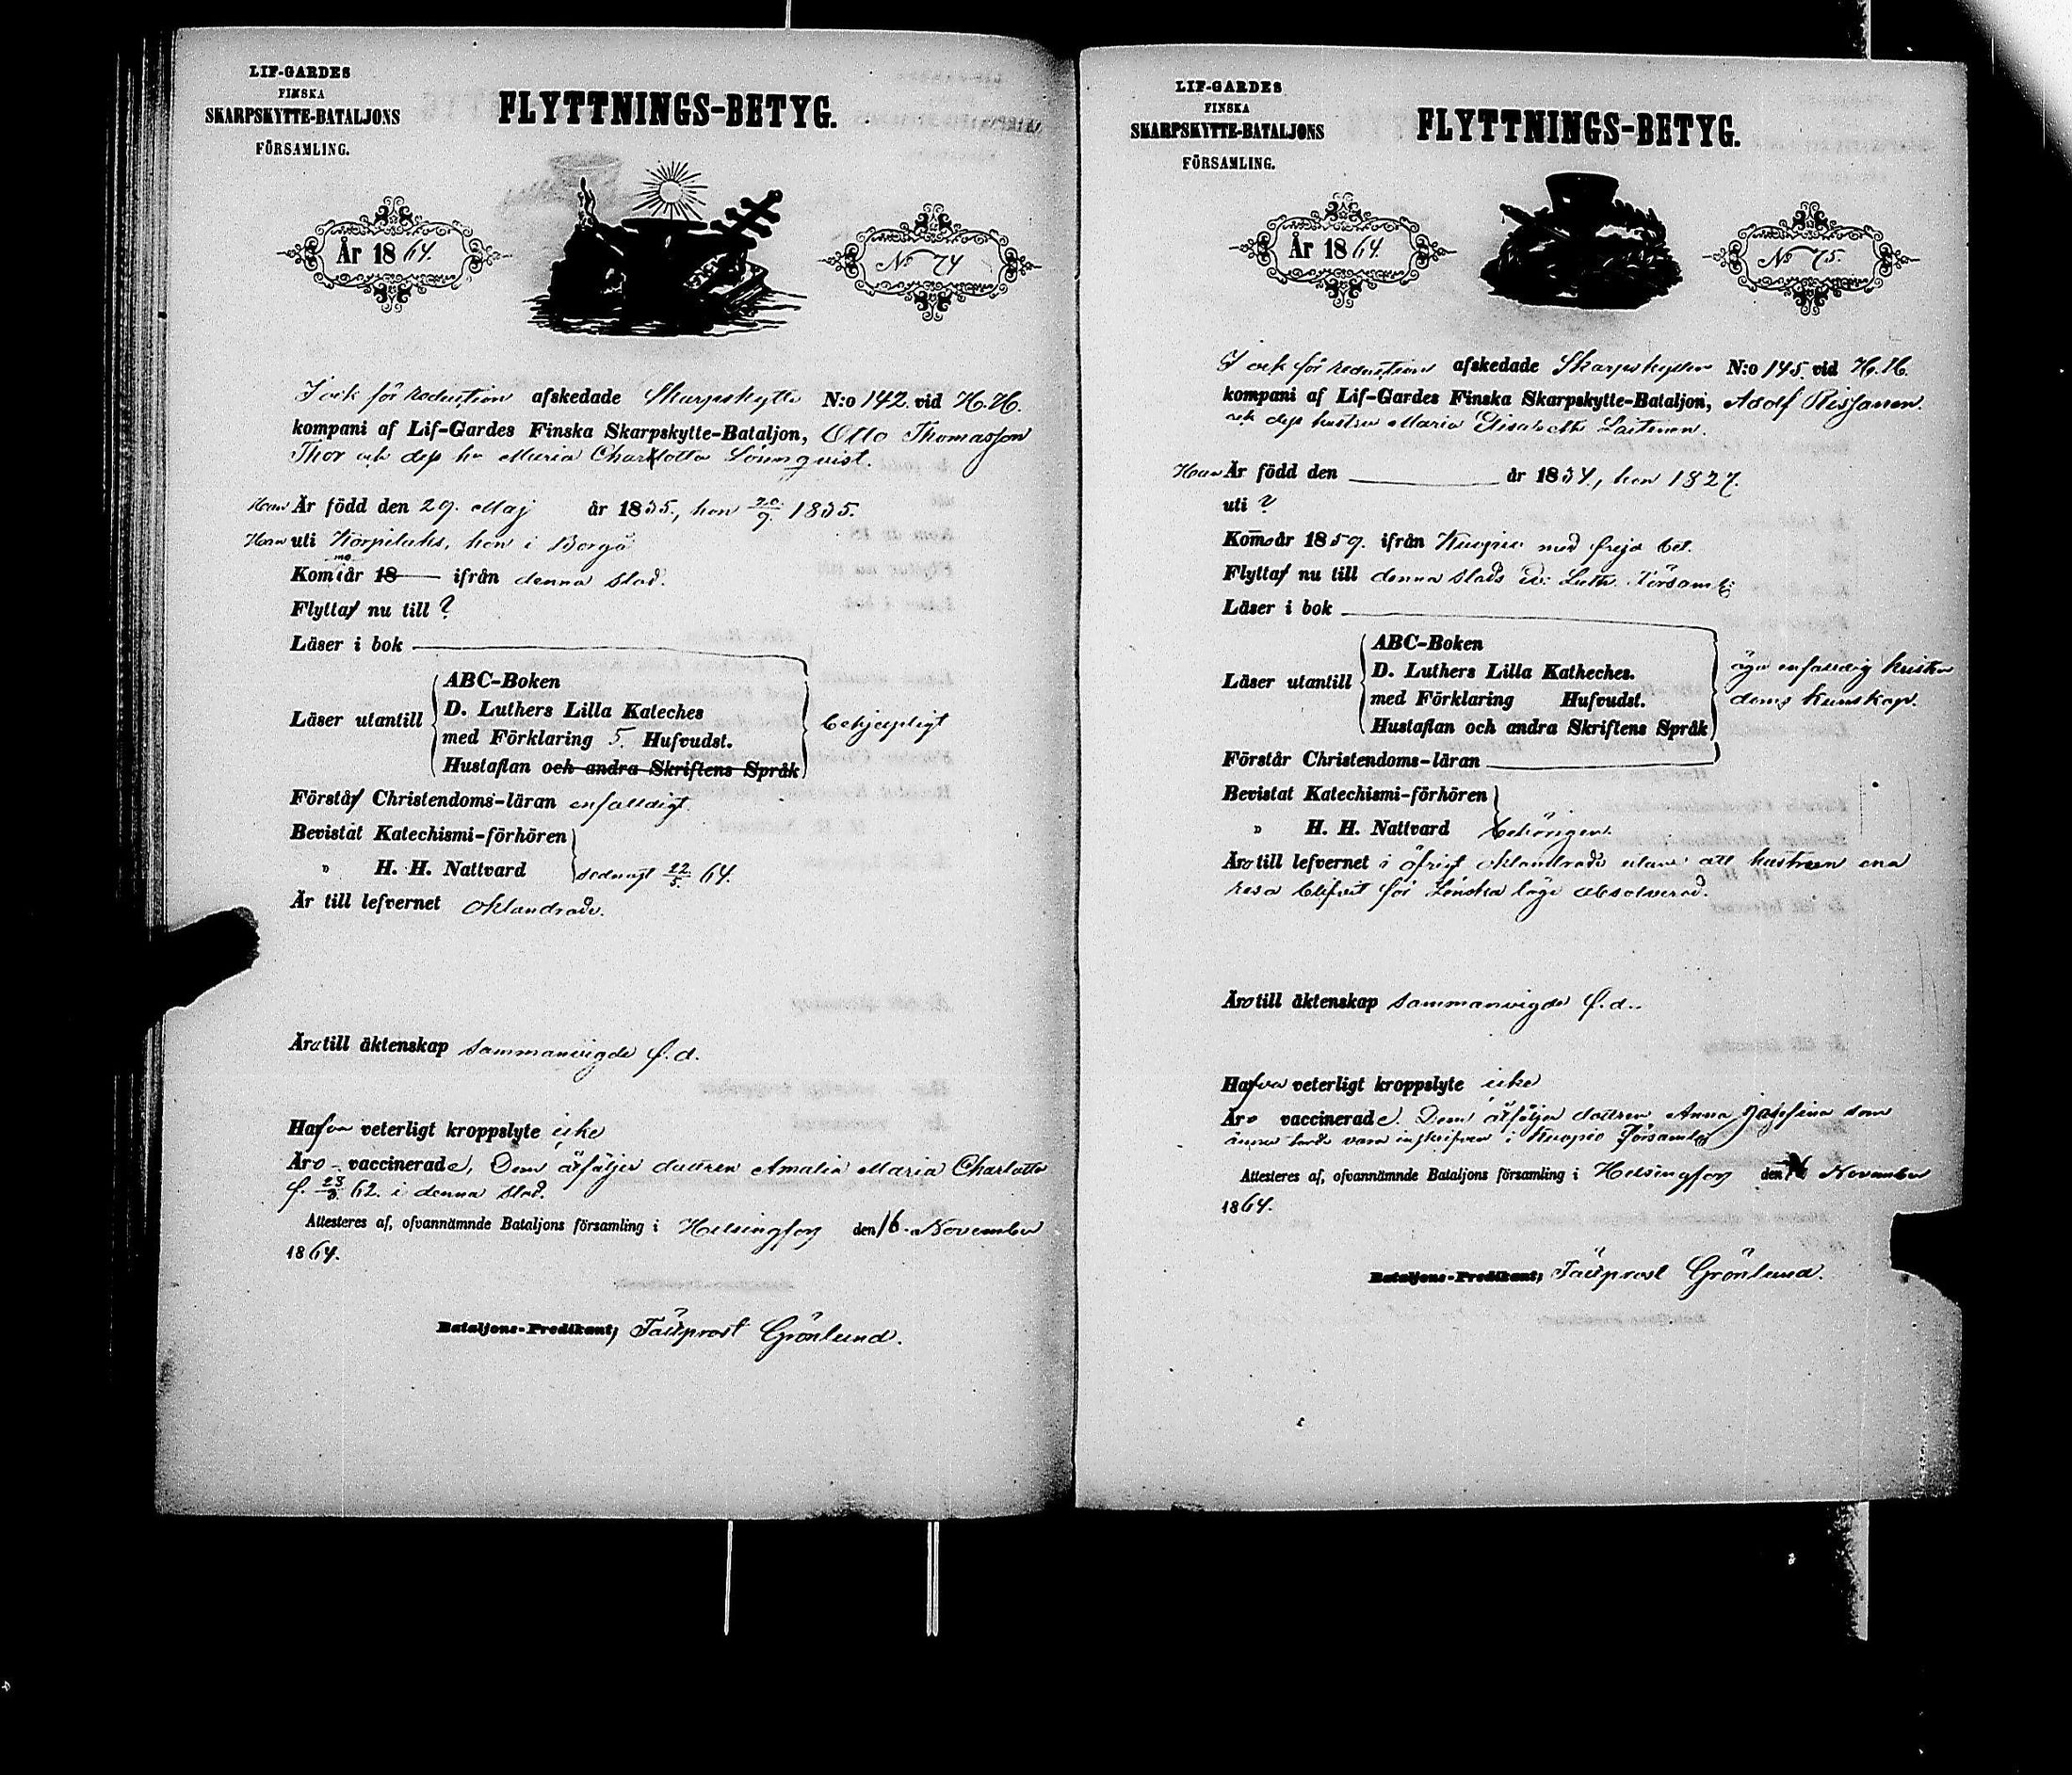 LIF-GARDES
FINSKA
SKARPSKYTTE-BATALJONS
FÖRSAMLING.
FLYTTNINGS-BETYG.
År 1864.
No 74
afskedade Skarpskytte N:o 142. vid H.H.
kompani af Lif-Gardes Finska Skarpskytte-Bataljon, Otto Thomasson
Thor och dess hu Maria Charlotta Lönnqvist.
Han Är född den 29. Maj år 1835., hon 20/9. 1835.
Han uti Korpilaks, hon i Borgå
Komme år 18 ifrån denna stad.
Flytta nu till ?
Läser i bok
Läser utantill
ABC-Boken
D. Luthers Lilla Kateches
med Förklaring 5. Hufvudst.
Hustaflan och andra Skriftens Språk
behjelpligt
Förstå Christendoms-läran enfaldigt
Bevistat Katechismi-förhören
" H. H. Nattvard sednast 22/5. 64.
Är till lefvernet oklandrade.
Äro till äktenskap sammanvigde f.d.
Hafva veterligt kroppslyte icke
Äro vaccinerade, Dem åtföljer dottren Amalia Maria Charlotta
f. 62. i denna stad.
Attesteres af, ofvannämnde Bataljons församling i Helsingfors den 16. November
1864.
Bataljons-Predikant, Fältprost Grönlund.
LIF-GARDES
FINSKA
SKARPSKYTTE-BATALJONS
FÖRSAMLING.
FLYTTNINGS-BETYG.
År 1864.
No 75.
afskedade Skarpskytten N:o 145 vid H.H.
kompani af Lif-Gardes Finska Skarpskytte-Bataljon, Adolf Rissanen.
och dess hustru Maria Elisabeth Laitinen.
Han Är född den år 1834., hon 1827.
uti ?
Komo år 1859. ifrån Kuopio med frejd bet.
Flytta nu till denna stads Ev: Luth. Församl:
Läser i bok
Läser utantill
ABC-Boken
D. Luthers Lilla Katheches.
med Förklaring Hufvudst.
Hustaflan och andra Skriftens Språk
äga enfaldig kristen
doms kunskap.
Förstår Christendoms-läran
Bevistat Katechismi-förhören
" H. H. Nattvard behörigen.
Äro till lefvernet i öfrigt oklandrade utan att hustrun ena
resa blifvit för Lönska läge absolverad.
Äro till äktenskap sammanvigde f.d.
Hafva veterligt kroppslyte icke
Äro vaccinerade. Dem åtföljer dottren Anna Josefina som
ännu torde vara inskrifven i Kuopio Församling
Attesteres af, ofvannämnde Bataljons församling i Helsingfors den November
1864.
Bataljons-Predikant, Fältprost Grönlund.